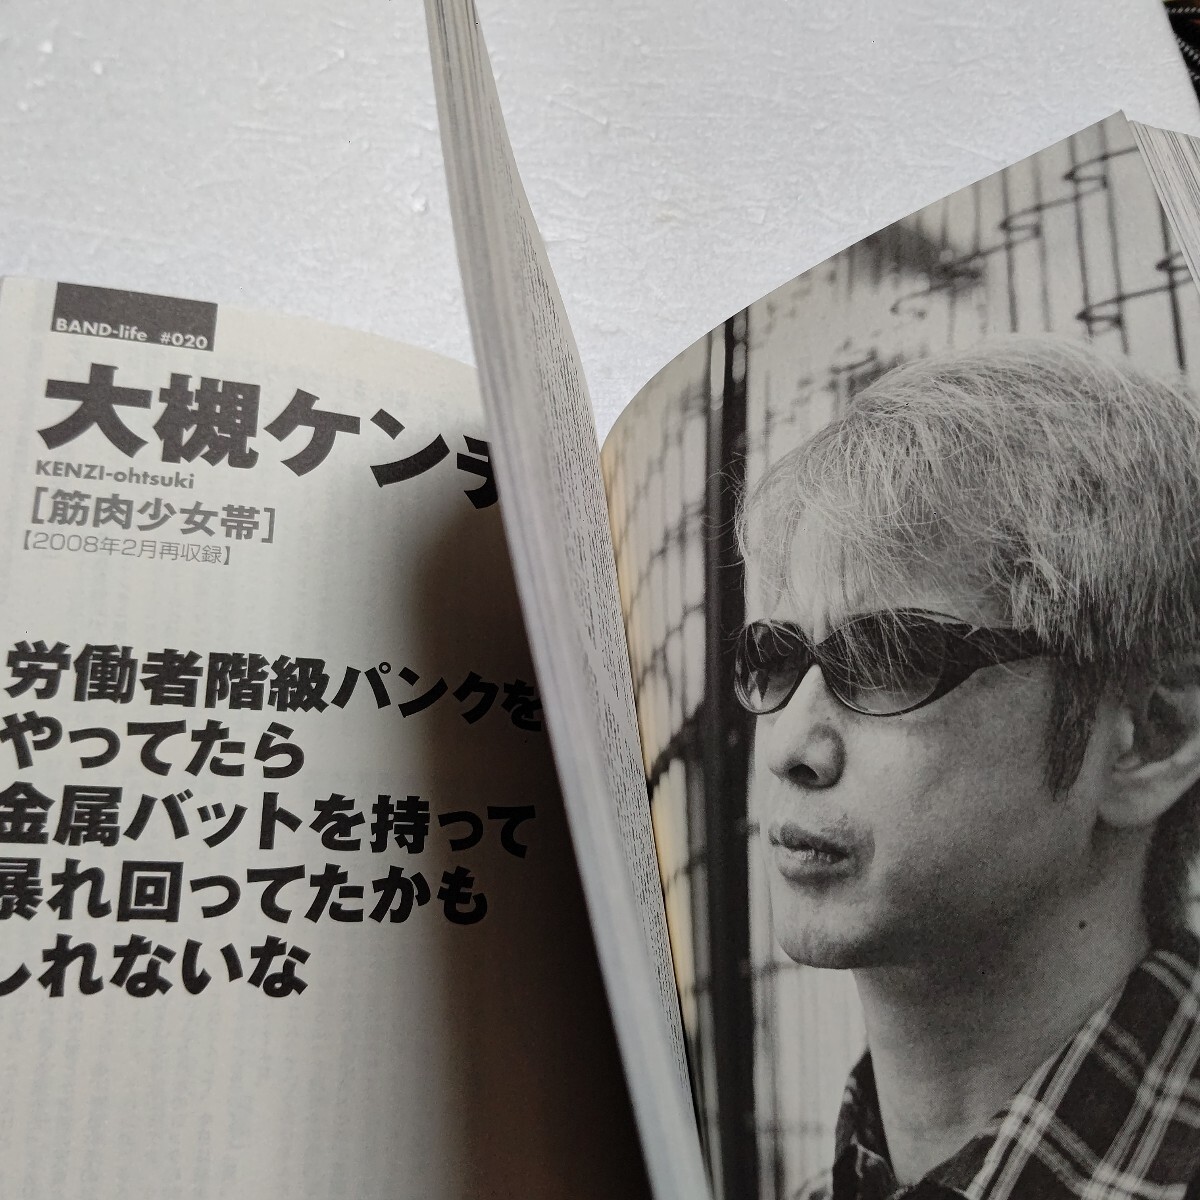 BAND-life #020
大槻ケンヂ
KENZI-ohtsuki
［筋肉少女帯］
【2008年2月再収録】
労働者階級パンクを
やってたら
金属バットを持って
暴れ回ってたかも
しれないな